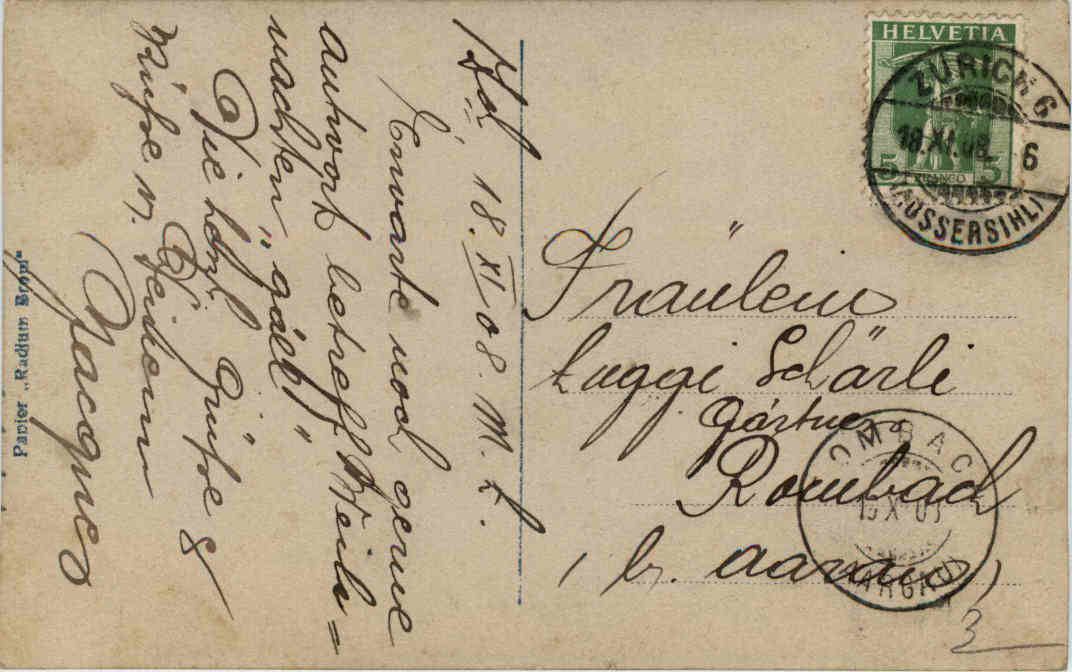 HELVETIA
5 FRANCO 5
ZÜRICH 6
18.XI.08. 6
(AUSSERSIHL)
Zch, 18. XI 08. M. L.
Erwarte noch gerne
antwort betreff Weih=
nachten "gäll"
Die herzl Grüsse &
Küsse v. Deinem
Jacques
Fräulein
Luggi Schärli
Gärtner
Rombach
(br. Aarau)
OMBAC
AARGAU
3
Papier „Radium Brom"